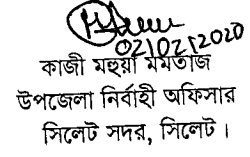 02/02/2020
কাজী মহুয়া মমতাজ
উপজেলা নির্বাহী অফিসার
সিলেট সদর, সিলেট।